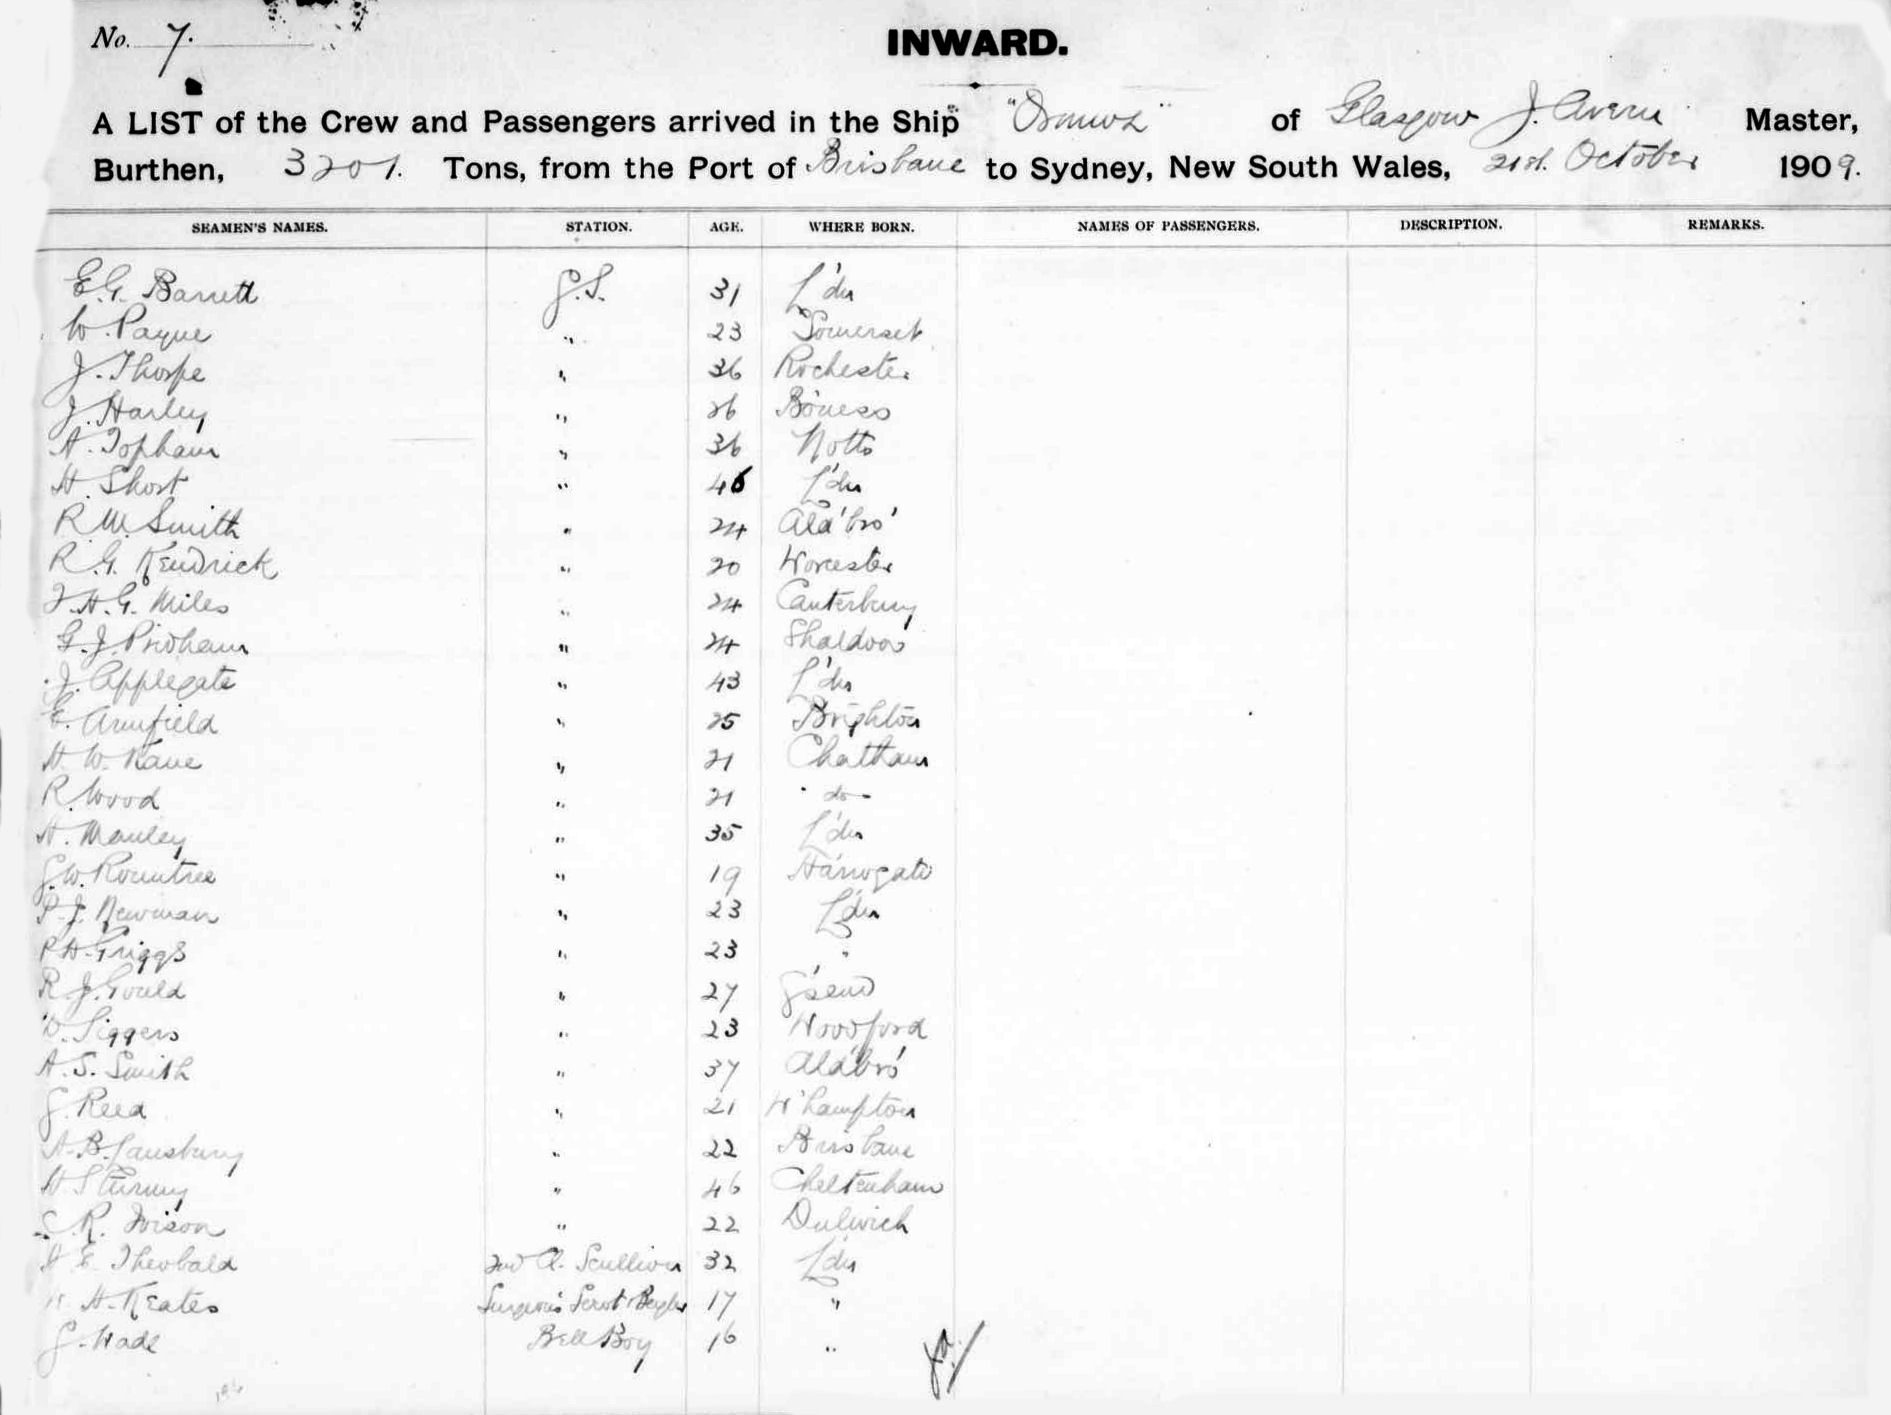 No. 7.
INWARD.
A LIST of the Crew and Passengers arrived in the Ship of Glasgow J. Master,
Burthen, 3201. Tons, from the Port of Brisbane to Sydney, New South Wales, 21st. October 1909.
SEAMEN'S NAMES. STATION. AGE. WHERE BORN. NAMES OF PASSENGERS. DESCRIPTION. REMARKS.
E.G. Barrett G.S. 31 L'dn
W. Payne " 23 Somerset
J. Thorpe " 36 Rochester
J. Harley " 26 Bo'ness
A. Topham " 36 Notts
H. Short " 46 L'dn
R.W. Smith " 24 Ald'bro'
R.G. Kendrick " 20 Worcester
F.H.G. Miles " 24 Canterbury
G.J. Pridham " 24 Shaldon
J. Applegate " 43 L'dn
E. Armfield " 25 Brighton
H.W. Kane " 21 Chatham
R. Wood " 21 - do -
H. Manley " 35 L'dn
G.W. Rountree " 19 Harrogate
P.J. Newman " 23 L'dn
P.H. Griggs " 23 "
R.J. Gould " 27 G'send
W. Siggers " 23 Woodford
A.S. Smith " 37 Ald'bro'
G. Reed " 21 W'hampton
A.B. Lansbury " 22 Brisbane
H. Sturmy " 46 Cheltenham
C.R. Ivison " 22 Dulwich
H.E. Theobald 2nd Cl. Scullion 32 L'dn
H. Keates Surgeon's Servt 17 "
G. Wade Bell Boy 16 "